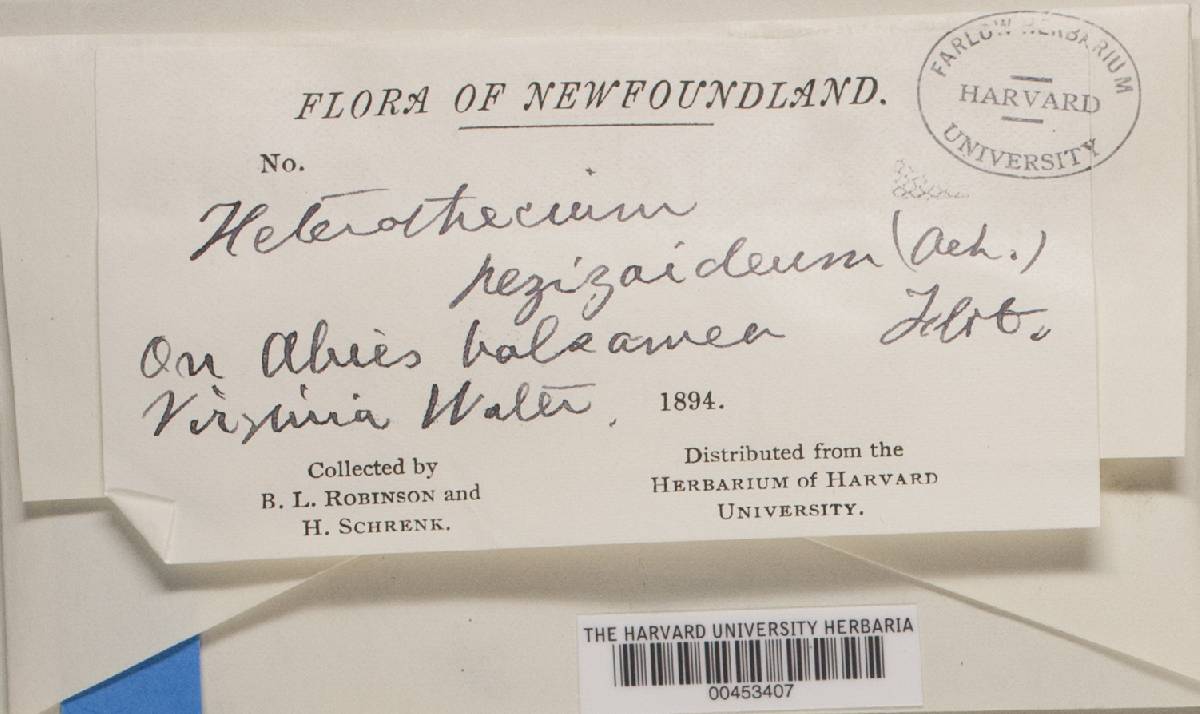 FLORA OF NEWFOUNDLAND.
FARLOW HERBARIUM
HARVARD
UNIVERSITY
No.
Heterothecium
pezizoideum (Ach.)
Flot.
On Abies balsamea
Virginia Water, 1894.
Collected by
B. L. ROBINSON and
H. SCHRENK.
Distributed from the
HERBARIUM of HARVARD
UNIVERSITY.
THE HARVARD UNIVERSITY HERBARIA
00453407